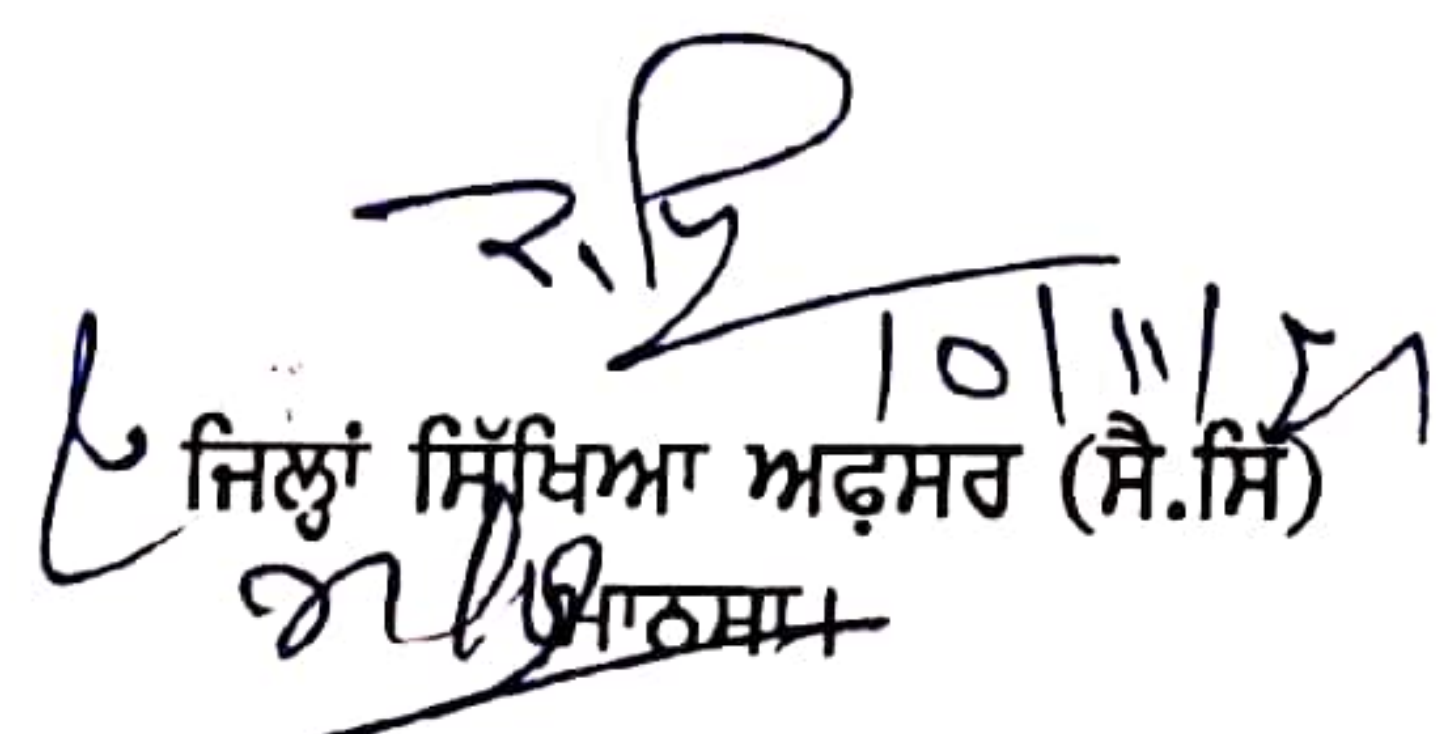 10/11/25
ਜਿਲ੍ਹਾਂ ਸਿੱਖਿਆ ਅਫ਼ਸਰ (ਸੈ.ਸਿੱ)
ਮਾਨਸਾ।